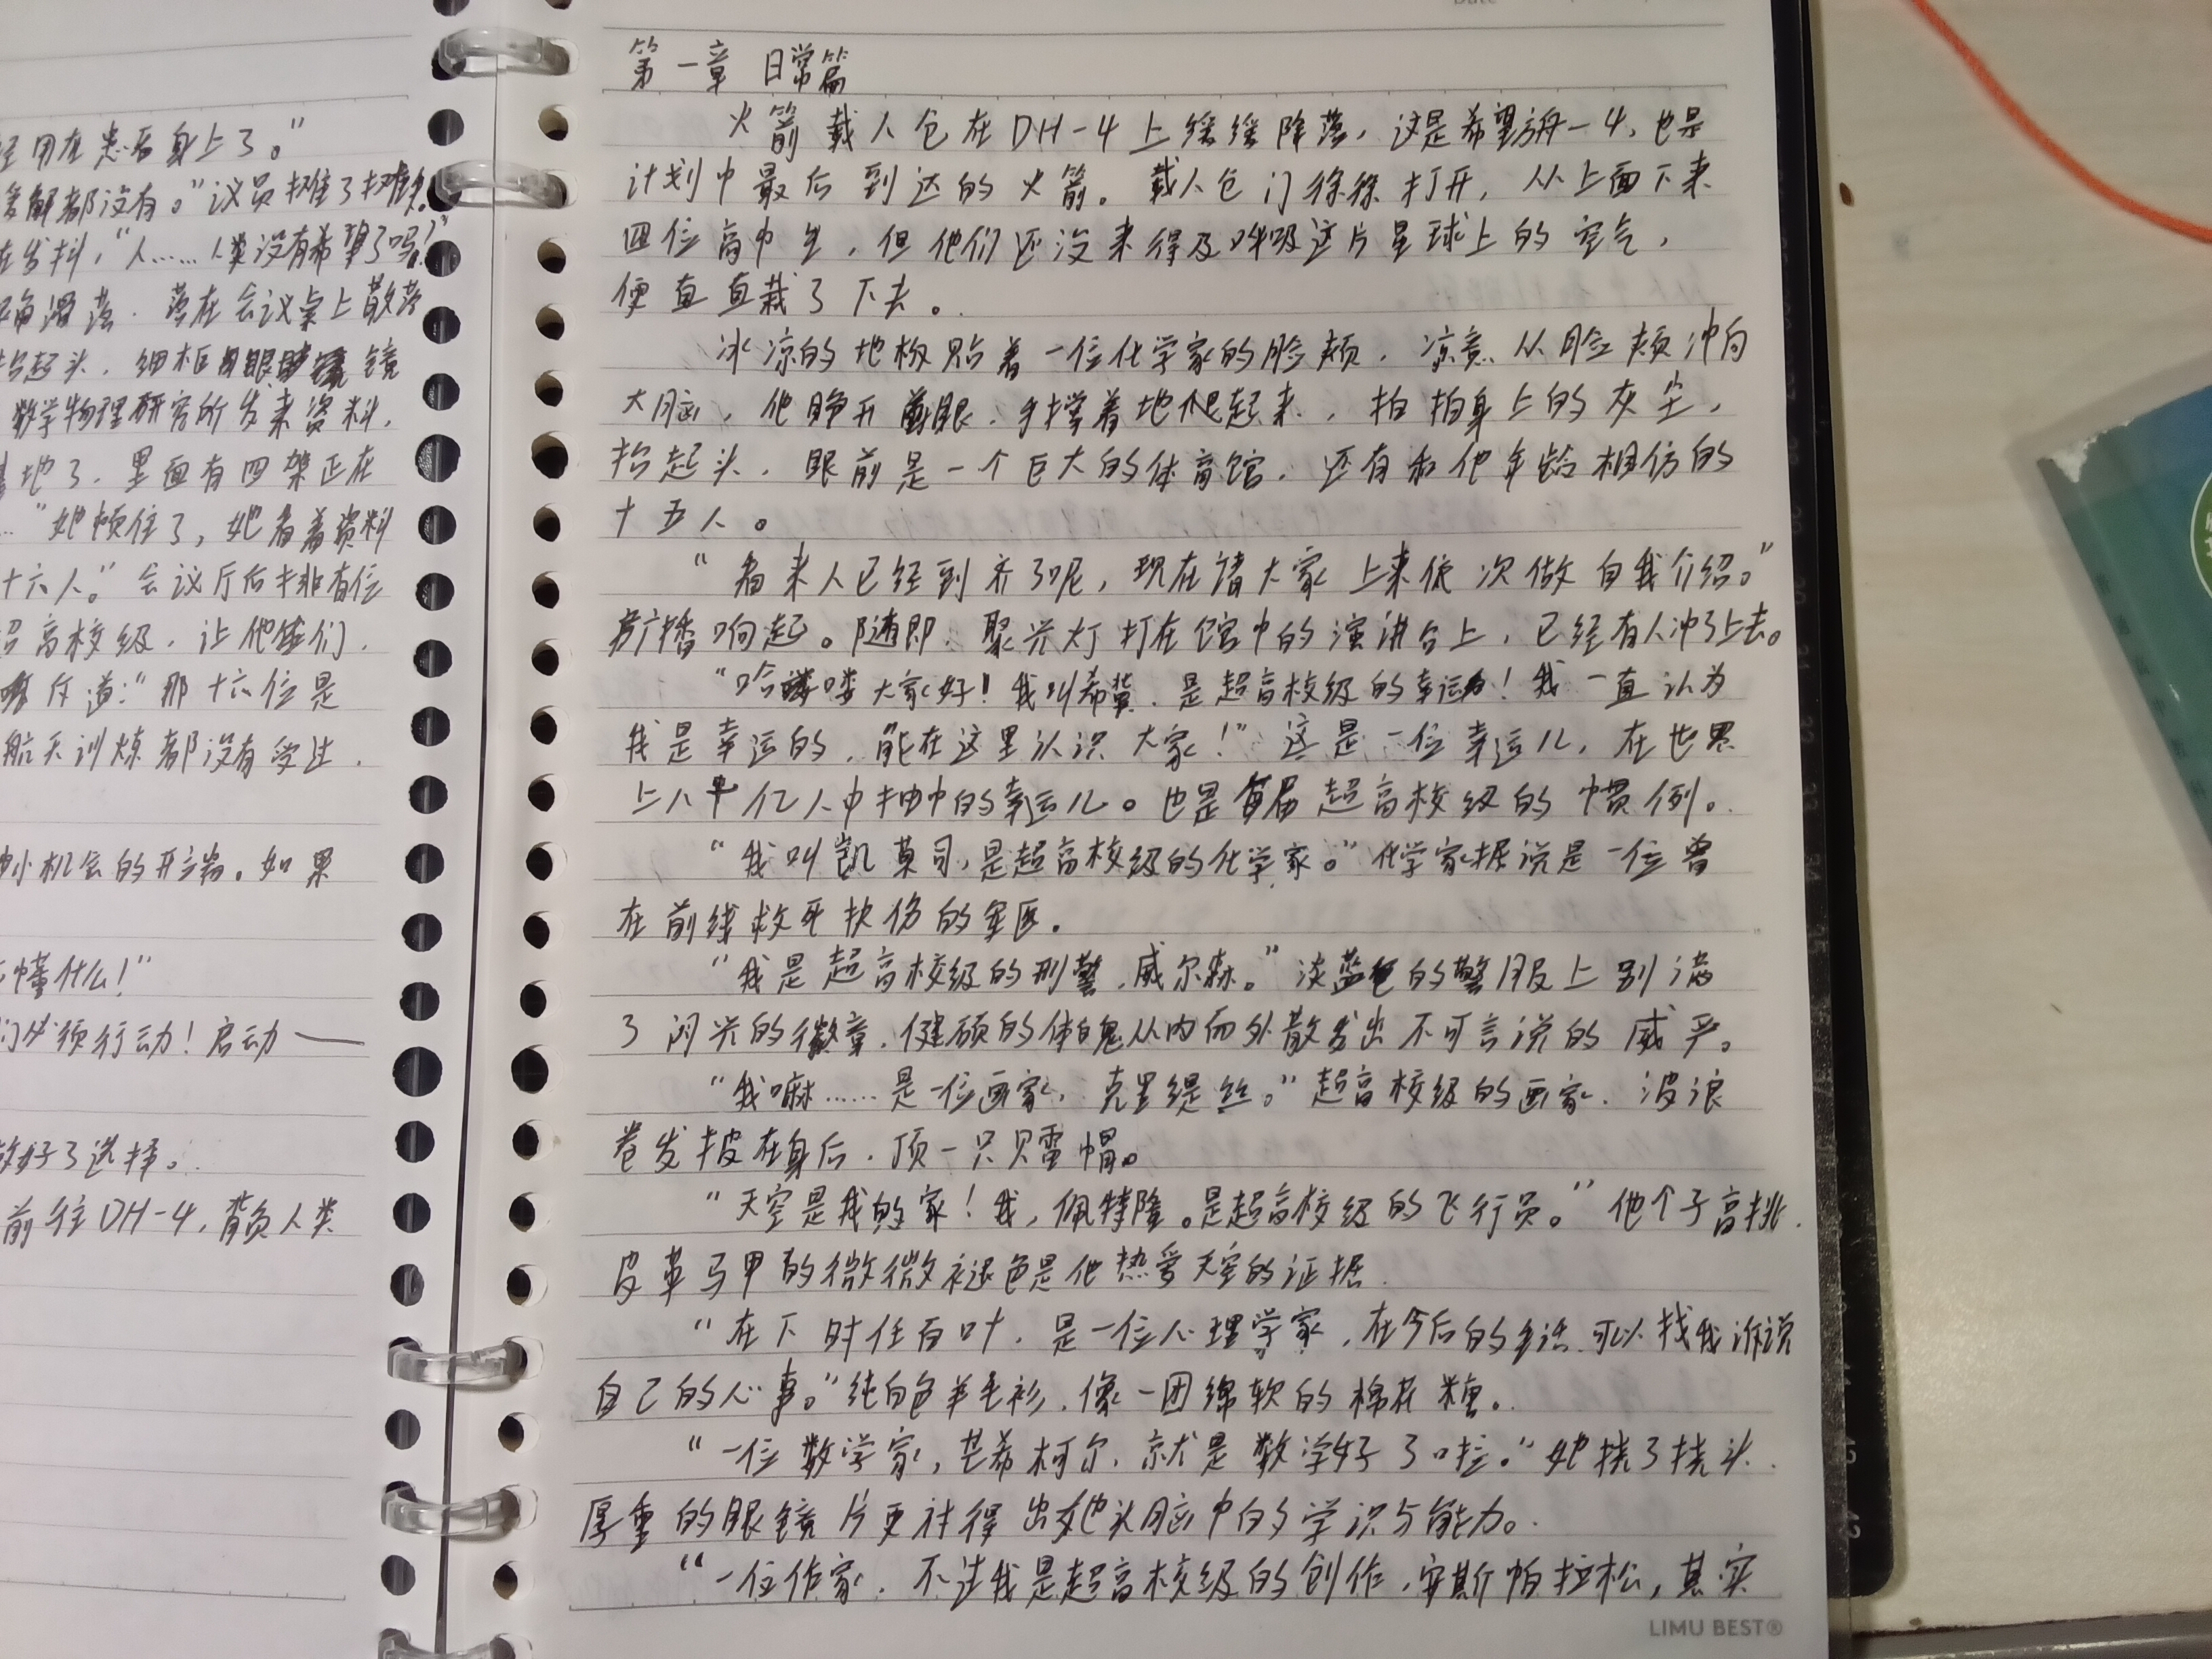 经用在患者身上了。”
解都没有。”议员摊了摊
在发抖，“人……人类没有希望了吗？”
滑落，落在会议桌上散落
抬起头，细框眼镜
数学物理研究所发来资料，
基地了，里面有四架正在
…”她顿住了，她看着资料
十六人。”会议厅后排有位
超高校级，让他们
斥道：“那十六位是
航天训练都没有受过，
机会的开端。如果
懂什么！”
们必须行动！启动——
做好了选择。
前往DH-4，背负人类
Date
第一章 日常篇
火箭载人仓在DH-4上缓缓降落，这是希望方舟-4，也是
计划中最后到达的火箭。载人仓门徐徐打开，从上面下来
四位高中生，但他们还没来得及呼吸这片星球上的空气，
便直直栽了下去。
冰凉的地板贴着一位化学家的脸颊，凉意从脸颊冲向
大脑，他睁开眼，手撑着地爬起来，拍拍身上的灰尘，
抬起头，眼前是一个巨大的体育馆，还有和他年龄相仿的
十五人。
“看来人已经到齐了呢，现在请大家上来依次做自我介绍。”
广播响起。随即，聚光灯打在馆中的演讲台上，已经有人冲了上去。
“哈喽大家好！我叫希冀，是超高校级的幸运！我一直认为
我是幸运的，能在这里认识大家！”这是一位幸运儿，在世界
上八十亿人中抽中的幸运儿。也是每届超高校级的惯例。
“我叫凯莫司，是超高校级的化学家。”化学家据说是一位曾
在前线救死扶伤的军医。
“我是超高校级的刑警，威尔森。”淡蓝色的警服上别满
了闪光的徽章，健硕的体魄从内而外散发出不可言说的威严。
“我嘛……是一位画家，克里缇丝。”超高校级的画家，波浪
卷发披在身后，顶一只贝雷帽。
“天空是我的家！我，佩特隆。是超高校级的飞行员。”他个子高挑，
皮革马甲的微微褪色是他热爱天空的证据。
“在下时任百叶，是一位心理学家，在今后的生活可以找我诉说
自己的心事。”纯白色羊毛衫，像一团绵软的棉花糖。
“一位数学家，芒希柯尔，就是数学好了啦。”她挠了挠头，
厚重的眼镜片更衬得出她头脑中的学识与能力。
“一位作家，不过我是超高校级的创作，安斯帕拉松，其实
LIMU BEST®